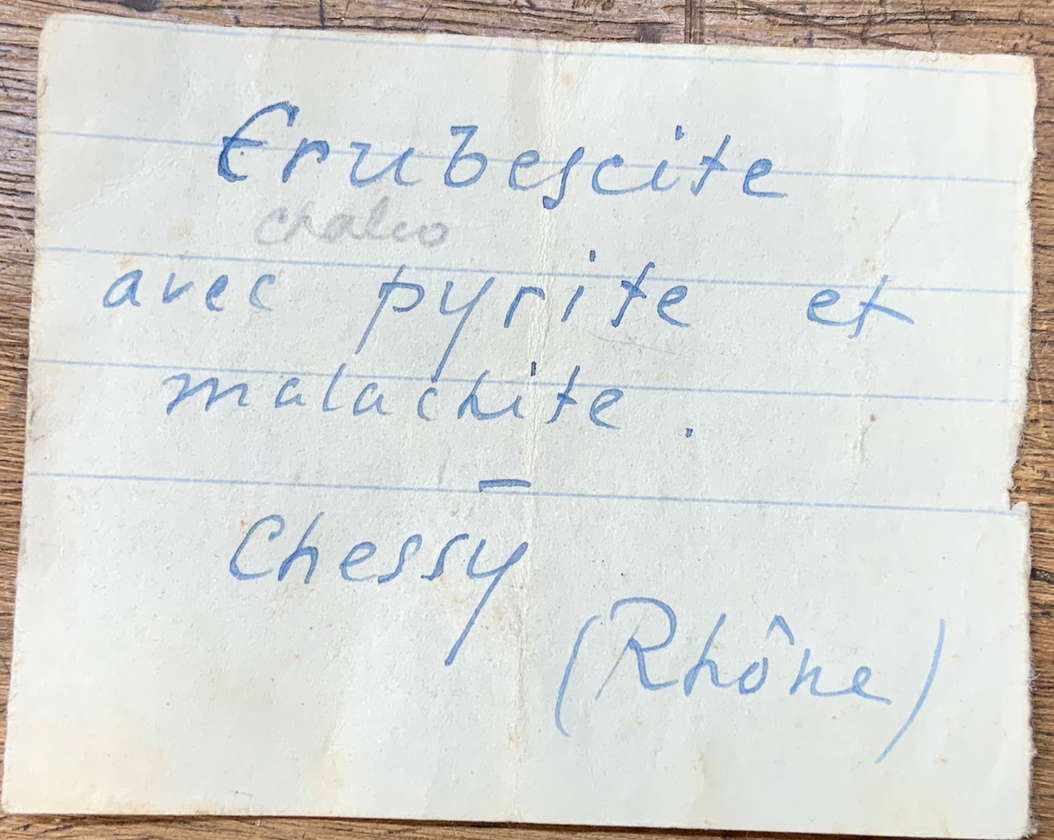 Erubescite
chalco
avec pyrite et
malachite.
—
Chessy
(Rhône)